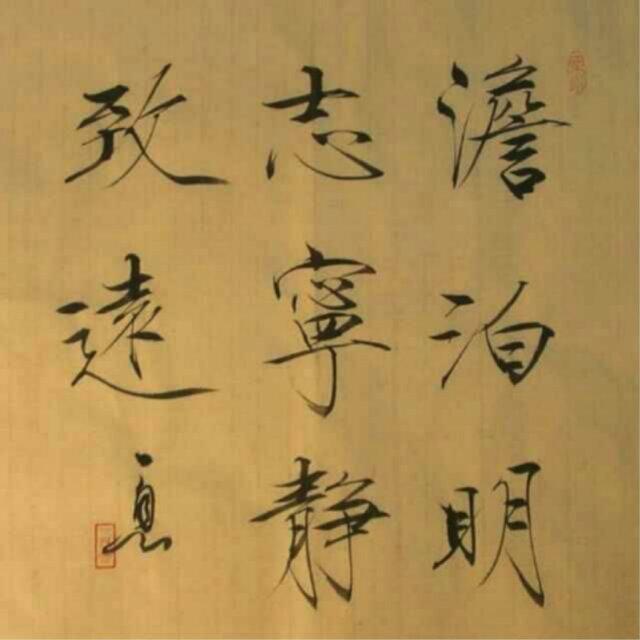 澹泊明
志寧靜
致遠 息